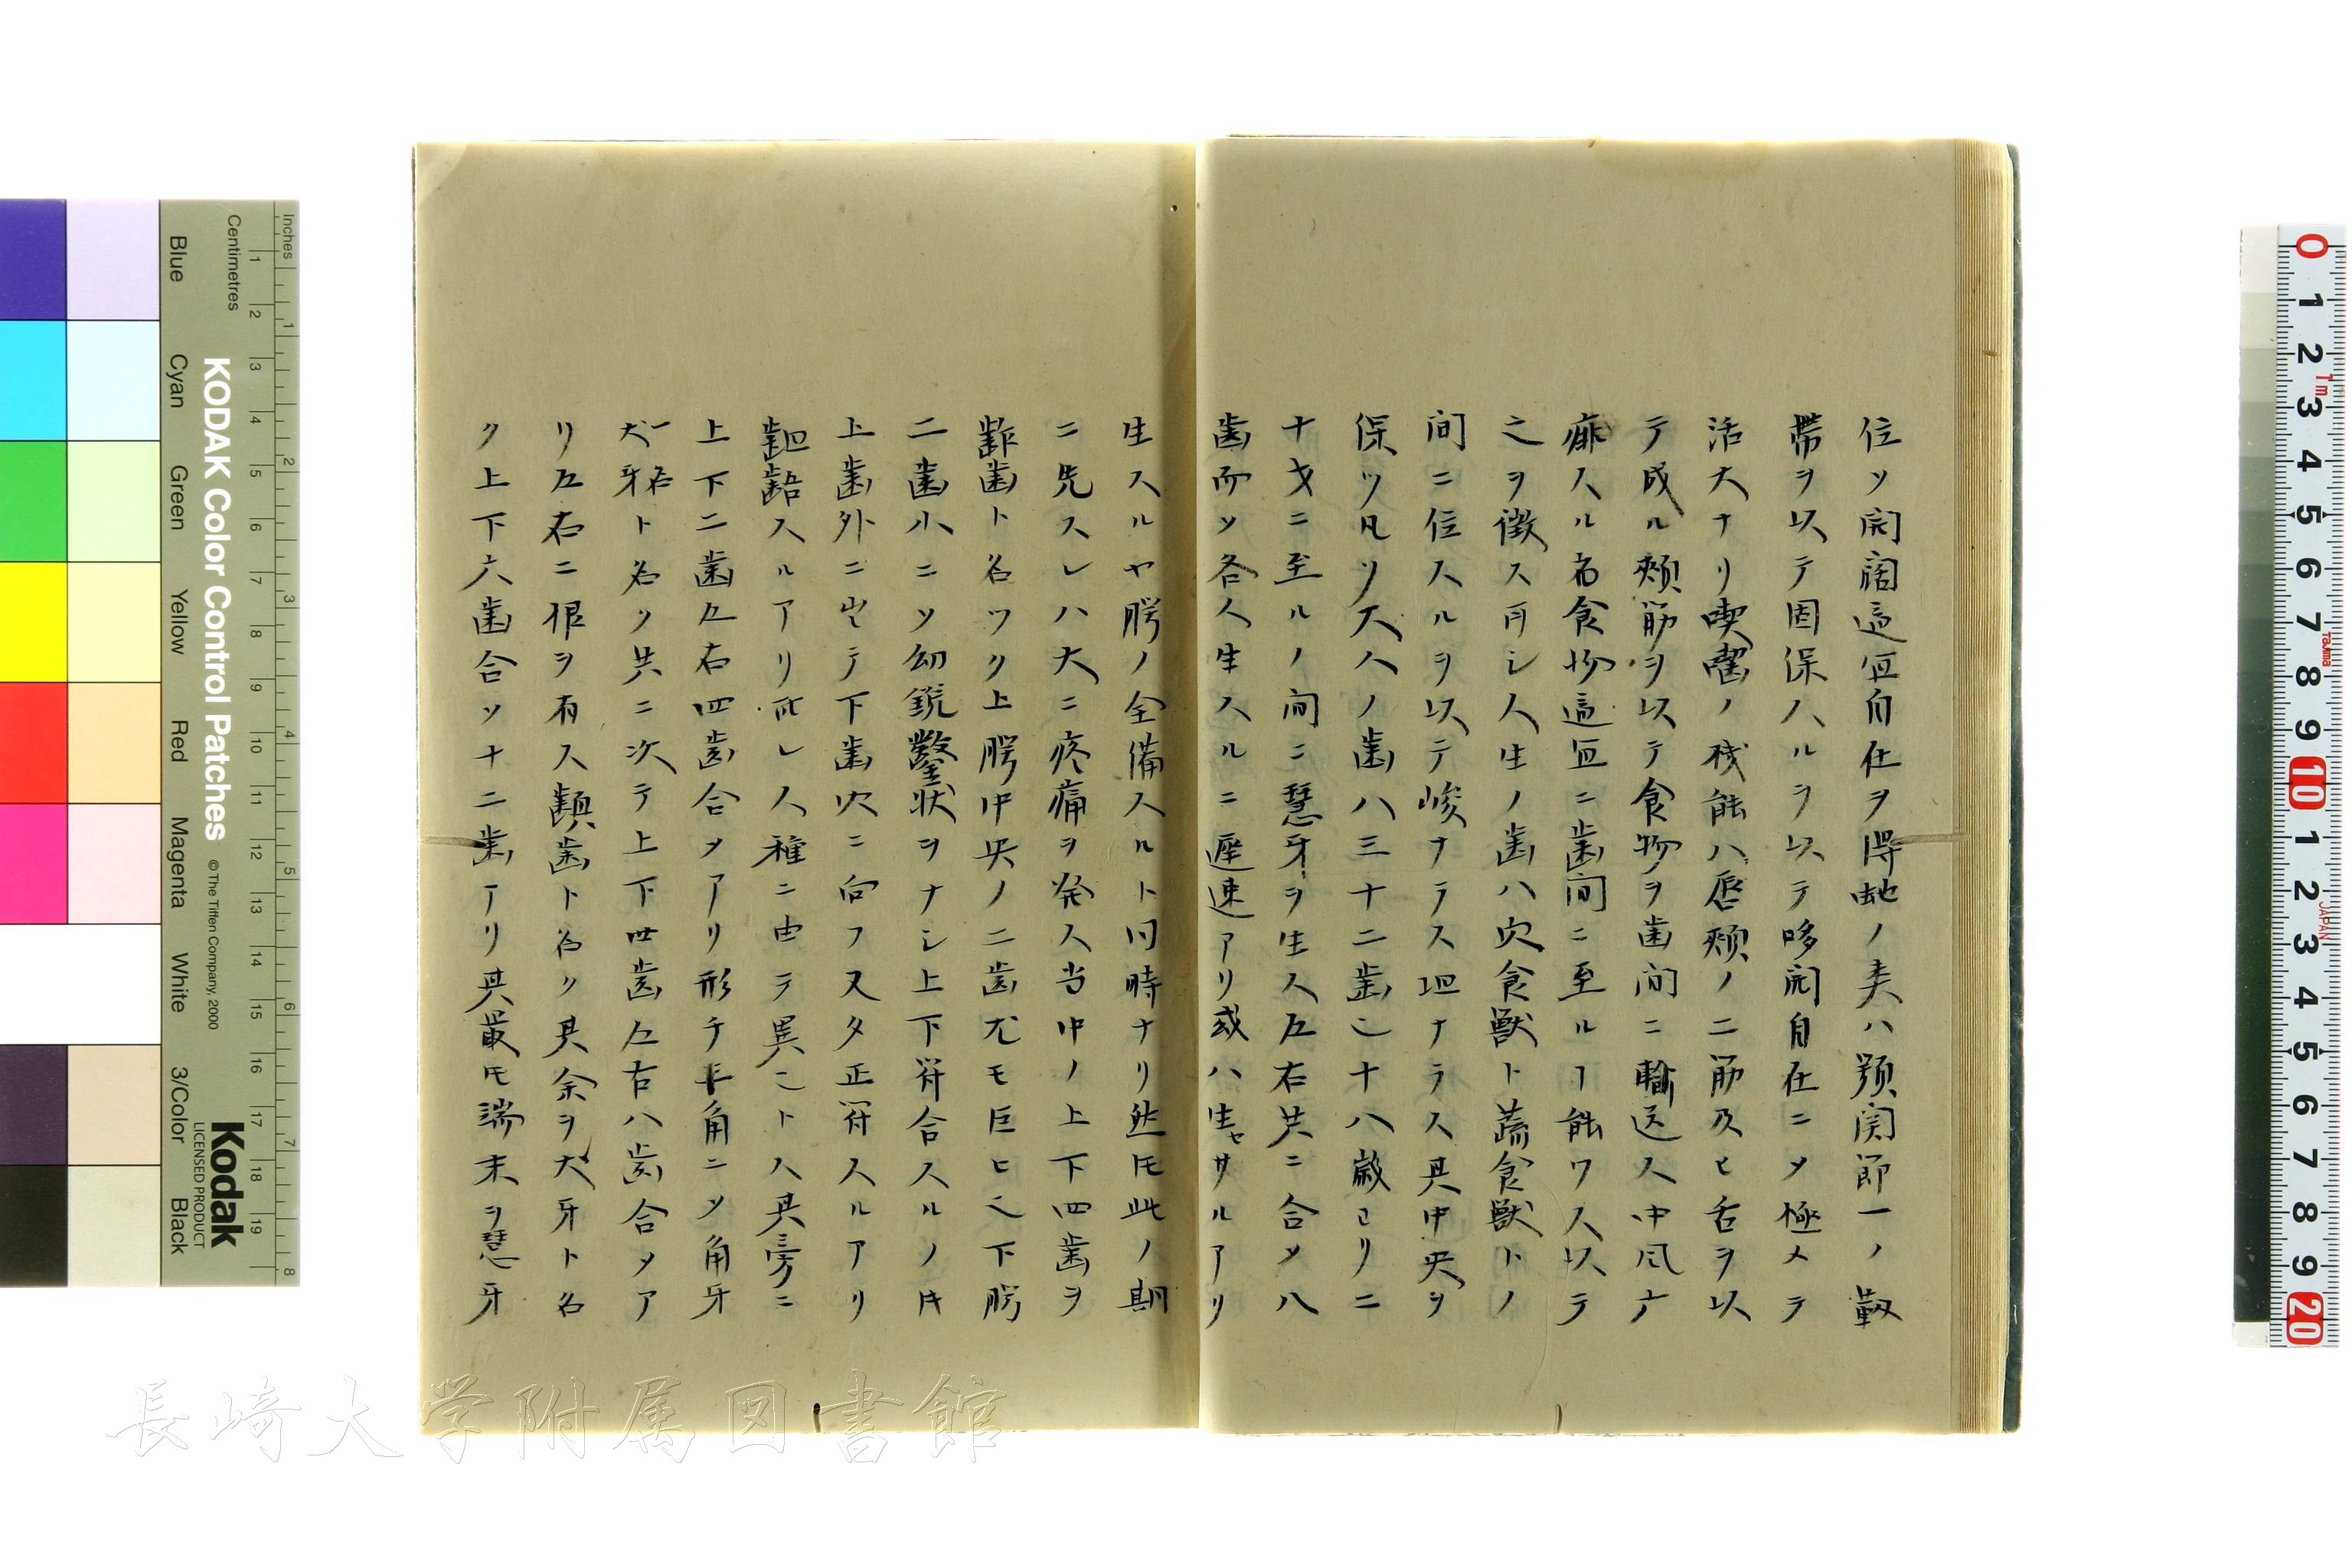 位ソ開闊適宜自在ヲ得蚍ノ奏ハ顎関節一ノ靱
帯ヲ以テ固保スルヲ以テ哆開自在ニメ極メテ
活大ナリ喫囓ノ機能ハ唇頬ノ二筋及ヒ舌ヲ以
テ成ル頬筋ヲ以テ食物ヲ歯間ニ輸送ス中風ニ
痱スル者食物適宜ニ歯間ニ至ルヿ能ワス以テ
之ヲ徴ス可シ人生ノ歯ハ穴食獣ト蔬食獣トノ
間ニ位スルヲ以テ峻ナラス坦ナラス其中央ヲ
保ツ凡ソ大人ノ歯ハ三十二歯也十八歳ヨリ二
十才ニ至ルノ間ニ慧牙ヲ生ス左右共ニ合メ八
歯而ソ各人生スルニ遅速アリ或ハ生セサルアリ
生スルヤ腭ノ全備スルト同時ナリ然𪜈此ノ期
ニ先スレハ大ニ疼痛ヲ発ス当中ノ上下四歯ヲ
齚歯ト名ツク上腭中央ノ二歯尤モ巨ヒ也下腭
二歯小ニソ幼鋭鑿状ヲナシ上下符合スルノ時
上歯外ニ出テ下歯穴ニ向フ又タ正符スルアリ
齟齬スルアリ所レ人種ニ由テ異也トス其旁ニ
上下二歯左右四歯合メアリ形チ手角ニソ角牙
一名
犬牙ト名ク共ニ次テ上下四歯左右八歯合メア
リ左右ニ根ヲ有ス齻歯ト名ク其余ヲ大牙ト名
ク上下六歯合ソ十二歯アリ其最モ端末ヲ慧牙
KODAK Color Control Patches
© The Tiffen Company, 2000
Kodak
LICENSED PRODUCT
Inches
Centimetres
Blue
Cyan
Green
Yellow
Red
Magenta
White
3/Color
Black
長崎大学附属図書館